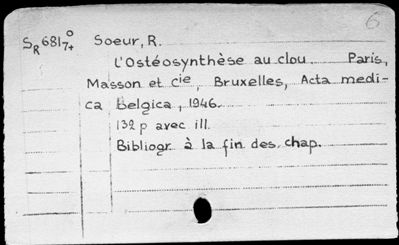 6
SR 6817+° Soeur, R.
L'Ostéosynthèse au clou. Paris,
Masson et Cie, Bruxelles, Acta medi-
ca Belgica, 1946.
132 p avec ill.
Bibliogr. à la fin des chap.